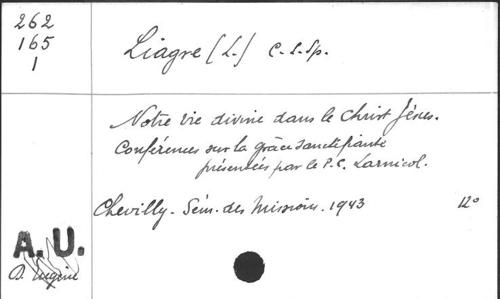 262
165
1
Liagre (L.) C.S.Sp.
Notre vie divine dans le Christ Jésus.
Conférences sur la grâce sanctifiante
présentées par le P.C. Larnicol.
Chevilly. Sém. des Missions. 1943 12°
A.U.